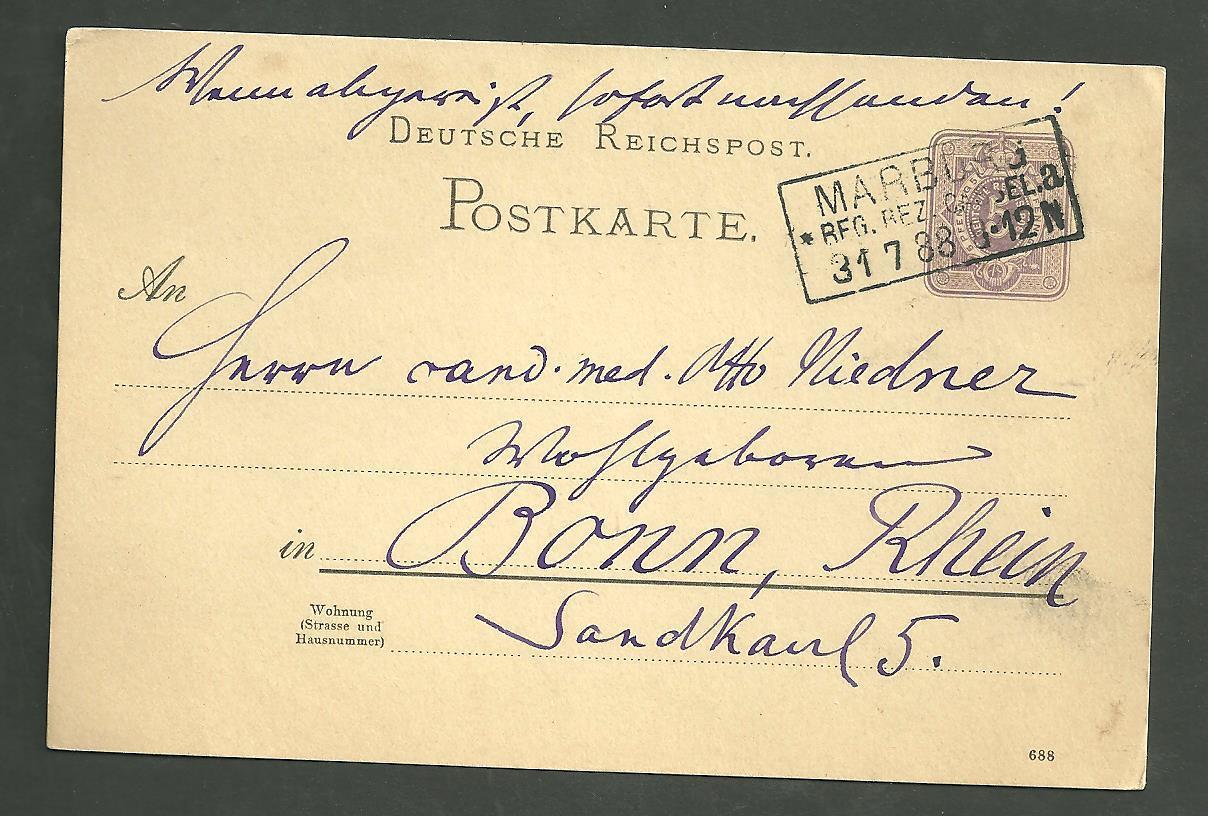 Wenn abgereist, sofort nachsenden!
DEUTSCHE REICHSPOST.
POSTKARTE.
MARBURG
* REG. BEZ. C SEL.a
31 7 88 8-12 N
An
Herrn cand. med. Otto Niedner
Wohlgeboren
in Bonn, Rhein
Wohnung
(Strasse und
Hausnummer)
Sandkaul 5.
688